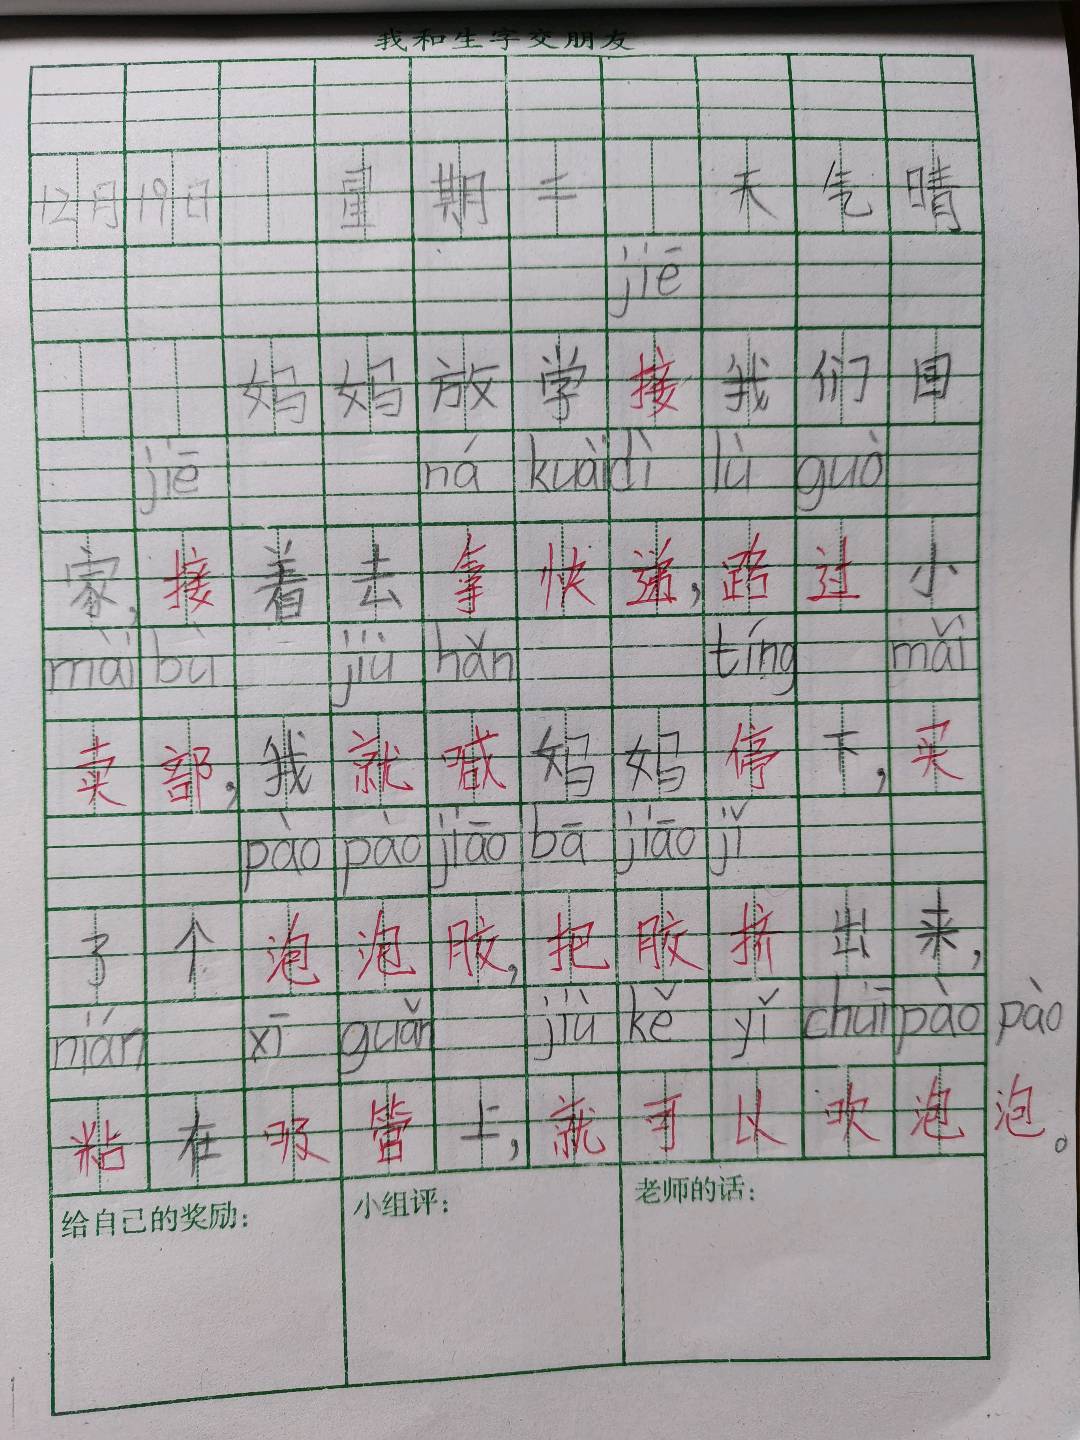 我和生字交朋友
12月19日 星期二 天气晴
jiē
妈妈放学接我们回
jiē ná kuài dì lù guò
家,接着去拿快递,路过小
mài bù jiù hǎn tíng mǎi
卖部,我就喊妈妈停下,买
pào pào jiāo bā jiāo jǐ
了个泡泡胶,把胶挤出来,
nián xī guǎn jiù kě yǐ chuī pào pào
粘在吸管上,就可以吹泡泡。
给自己的奖励:
小组评:
老师的话: